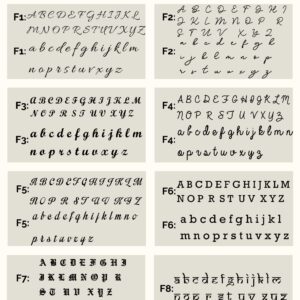 F1: A B C D E F G H I J K L
M N O P Q R S T U V X Y Z
F1: a b c d e f g h i j k l m
n o p q r s t u v x y z
F2: A B C D E F G H I
J K L M N O P Q R
S T U V X Y Z
F2: a b c d e f g h
i j k l m n o p
q r s t u v x y z
F3: A B C D E F G H I J K L M
N O P Q R S T U V X Y Z
F3: a b c d e f g h i j k l m
n o p q r s t u v x y z
F4: A B C D E F G H I J K L M
N O P Q R S T U V X Y Z
F4: a b c d e f g h i j k l m
n o p q r s t u v x y z
F5: A B C D E F G H I J K L M
N O P Q R S T U V X Y Z
F5: a b c d e f g h i j k l m n o
p q r s t u v x y z
F6: A B C D E F G H I J K L M
N O P Q R S T U V X Y Z
F6: a b c d e f g h i j k l
m n o p q r s t u v x y z
F7: A B C D E F G H
I J K L M N O P
Q R S T U V X Y Z
F8: a b c d e f g h i j k l m
n o p q r s t u v x y z